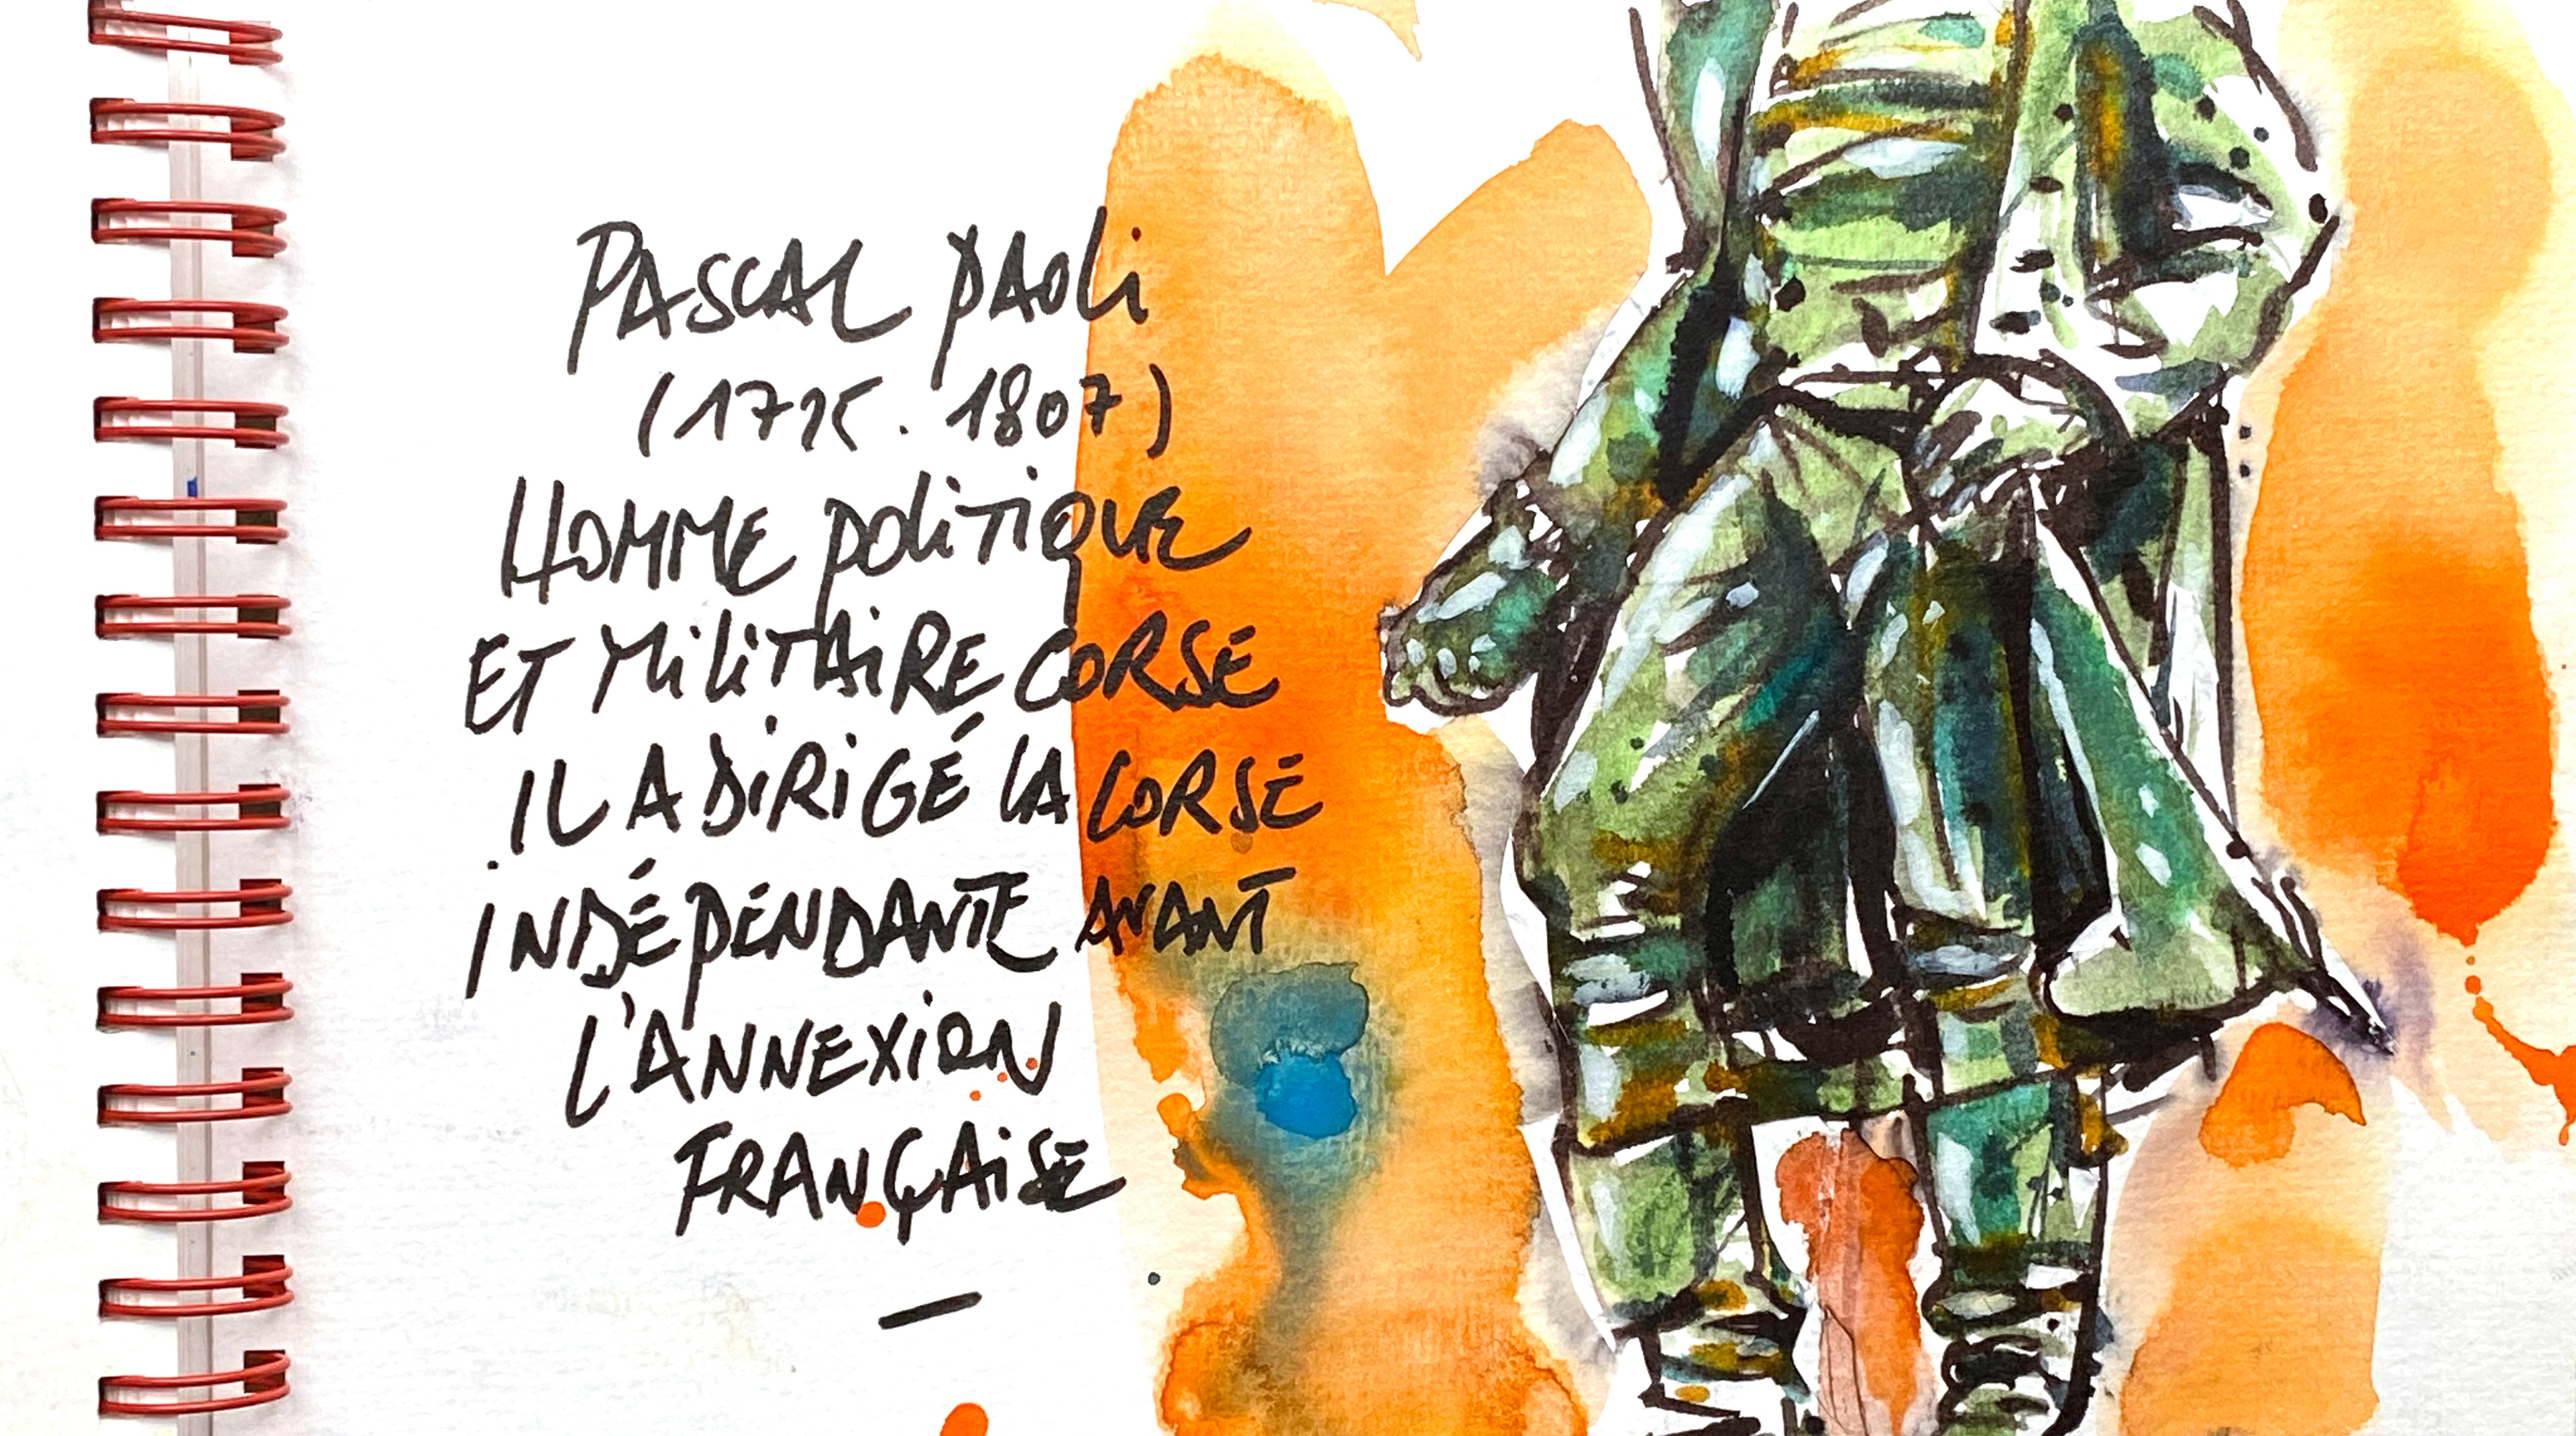 PASCAL PAOLI
(1725. 1807)
HOMME POLITIQUE
ET MILITAIRE CORSE
IL A DIRIGÉ LA CORSE
INDÉPENDANTE AVANT
L'ANNEXION
FRANÇAISE
—